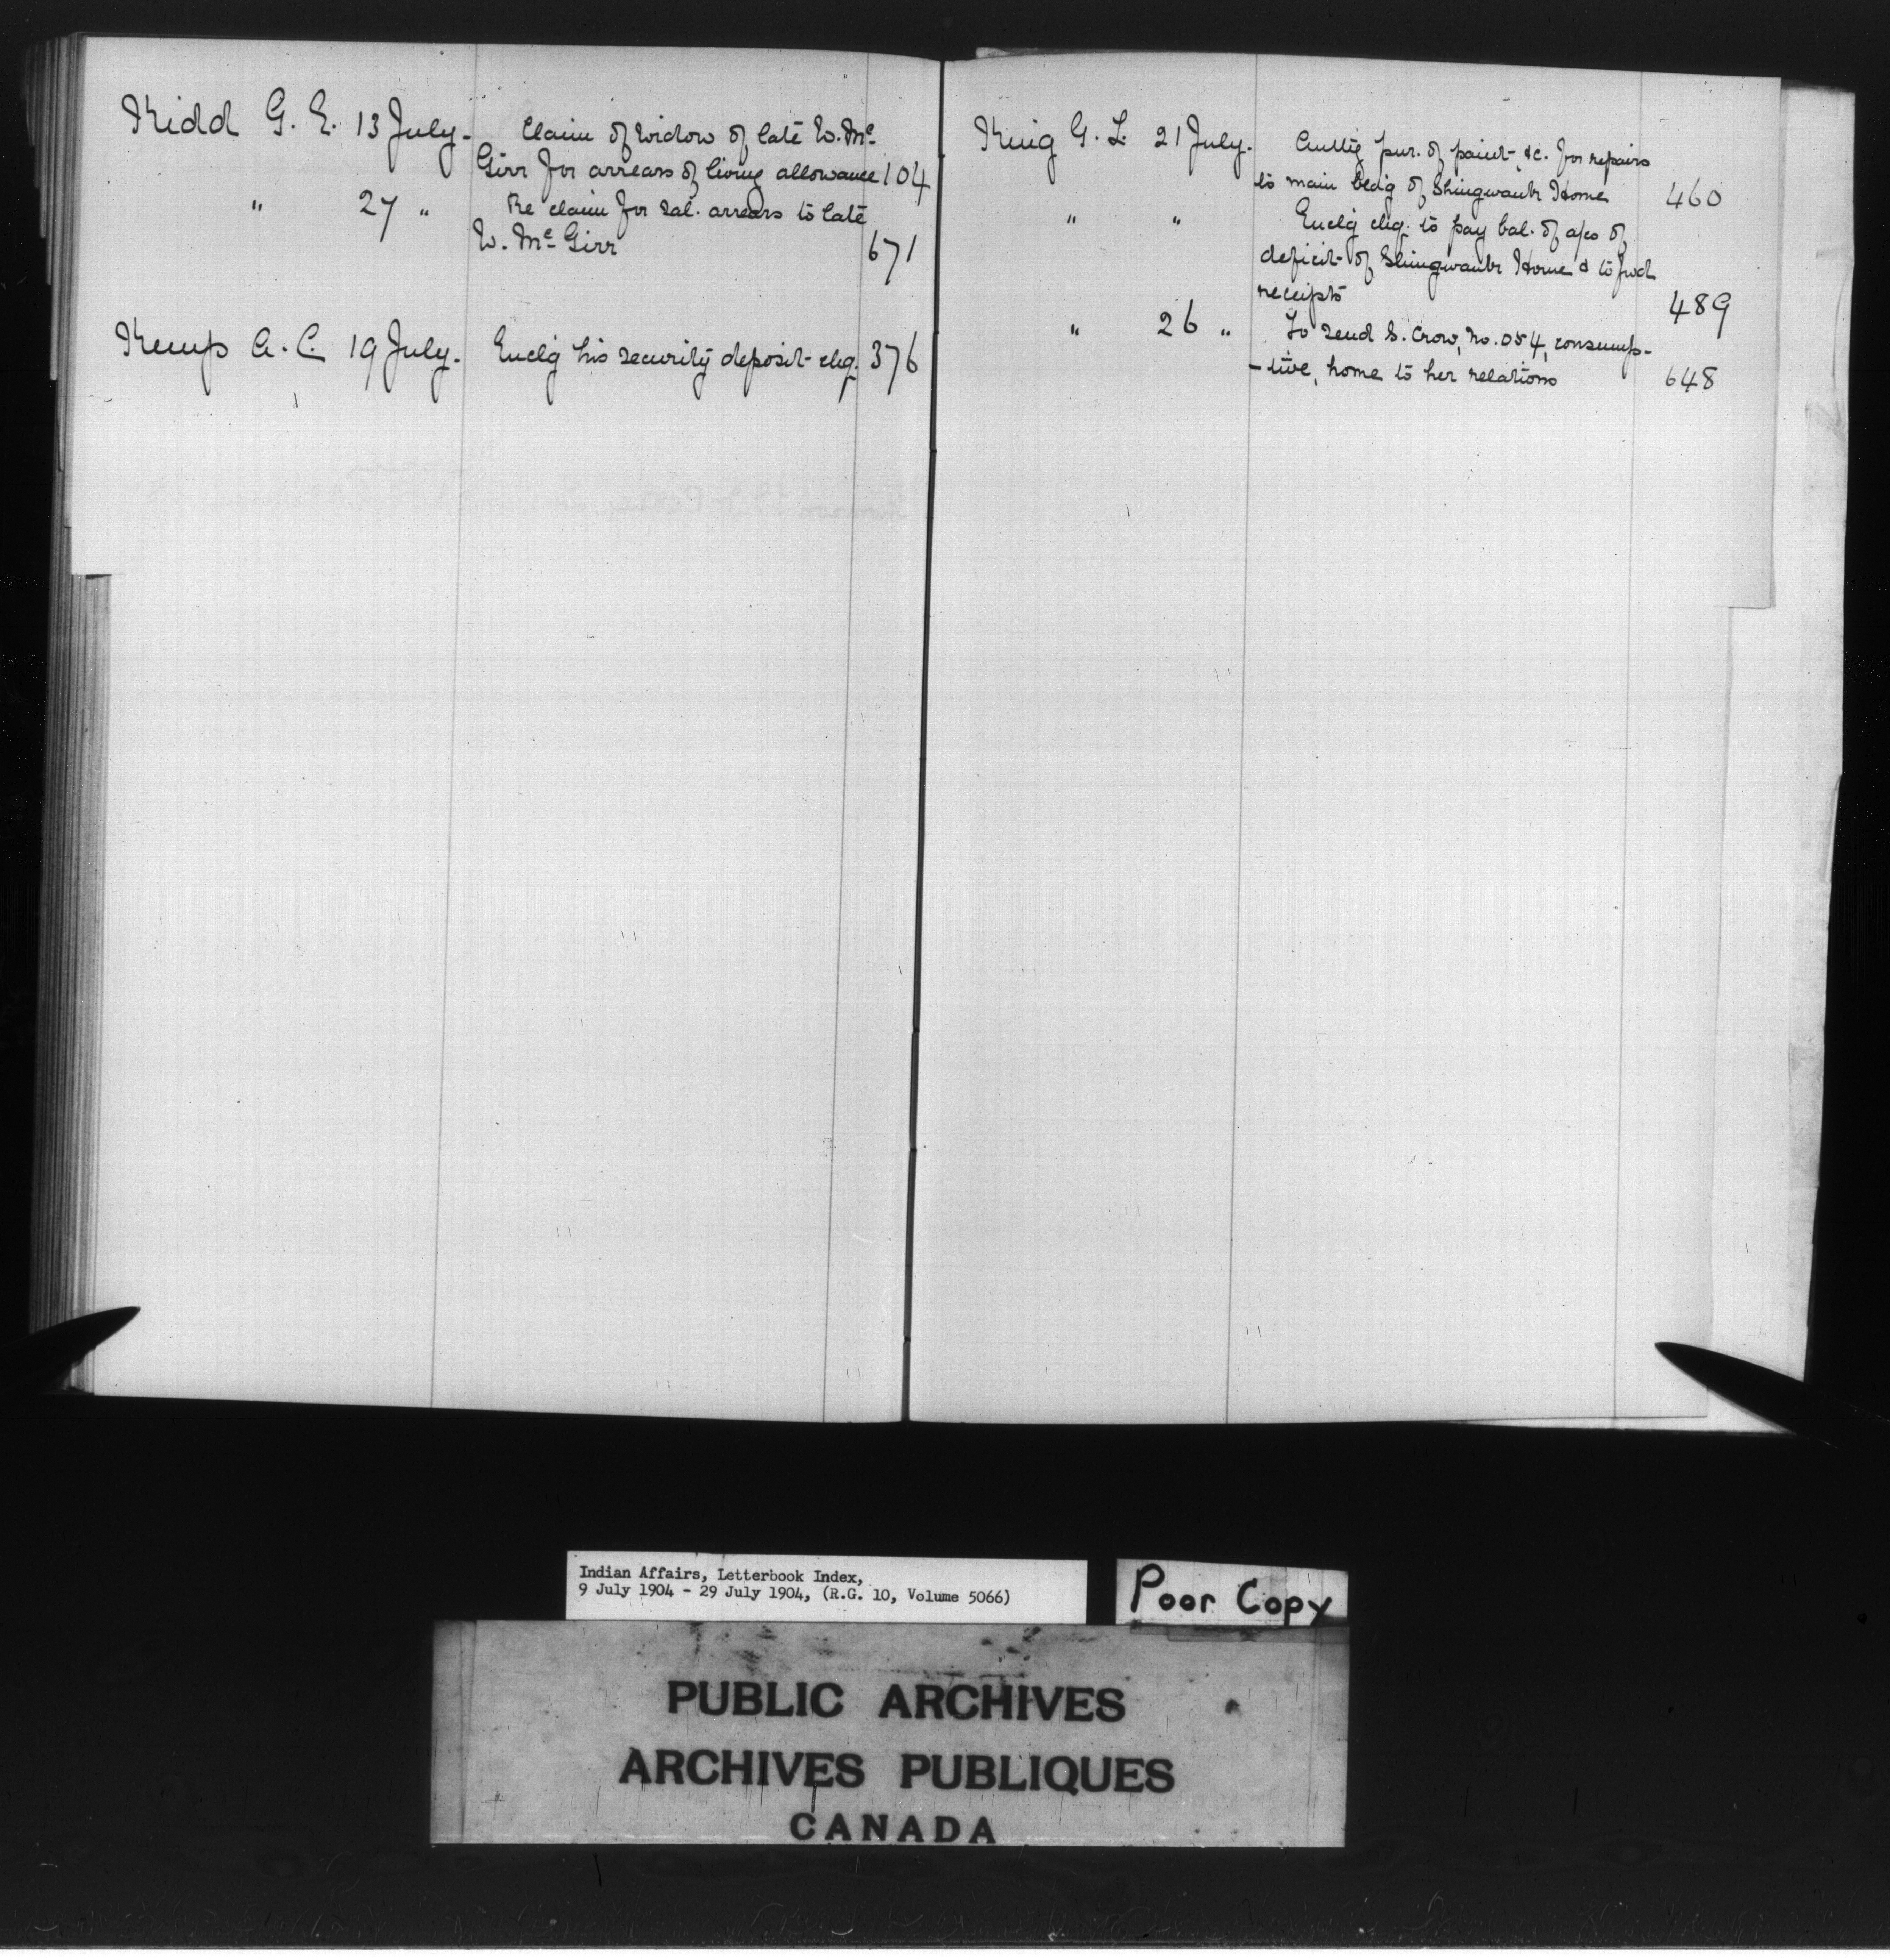 Kidd G. E. 13 July. Claim of widow of late W. Mc
Girr for arrears of living allowance 104
" 27 " Re claim for sal. arrears to late
W. Mc Girr 671
Kemp A. C. 19 July. Enclg his security deposit chq. 376
King G. L. 21 July. Authg pur. of paint &c. for repairs
to main bldg of Shingwauk Home 460
" " Enclg chq. to pay bal. of a/co of
deficit of Shingwauk Home & to fwd
receipts 489
" 26 " To send S. Crow, No. 054, consump-
-tive, home to her relations 648
Indian Affairs, Letterbook Index,
9 July 1904 - 29 July 1904, (R.G. 10, Volume 5066)
Poor Copy
PUBLIC ARCHIVES
ARCHIVES PUBLIQUES
CANADA